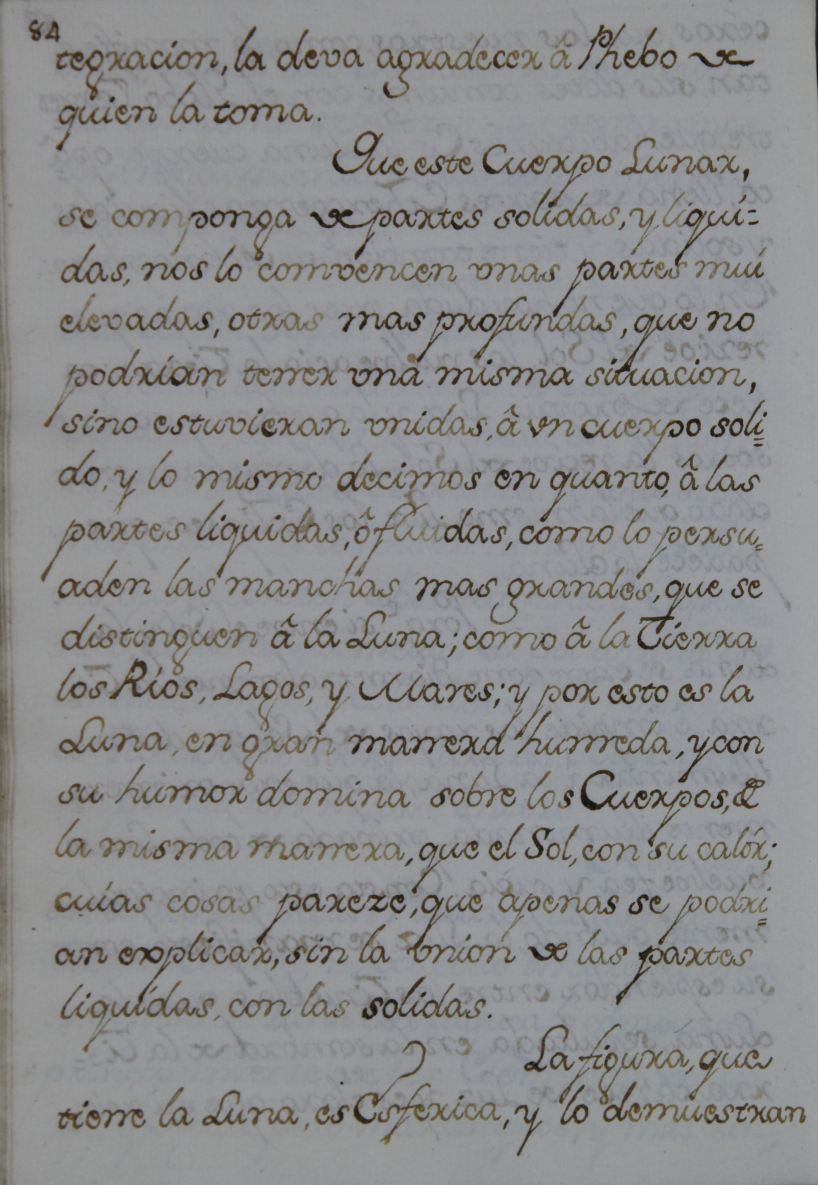 84
tegracion, la deva agradecer â Phebo de
quien la toma.
Que este Cuerpo Lunar,
se componga de partes solidas, y liqui=
das, nos lo comvencen vnas partes mui
elevadas, otras mas profundas, que no
podrian tener vna misma situacion,
sino estuvieran vnidas, â vn cuerpo soli=
do, y lo mismo decimos en quanto, â las
partes liquidas, ô fluidas, como lo persu=
aden las manchas mas grandes, que se
distinguen â la Luna; como â la Tierra
los Rios, Lagos, y Mares; y por esto es la
Luna, en gran manera humeda, y con
su humor domina sobre los Cuerpos, de
la misma manera, que el Sol, con su calór;
cuías cosas pareze, que apenas se podri=
an explicar, sin la vnion de las partes
liquidas, con las solidas.
La figura, que
tiene la Luna, es Esferica, y lo demuestran